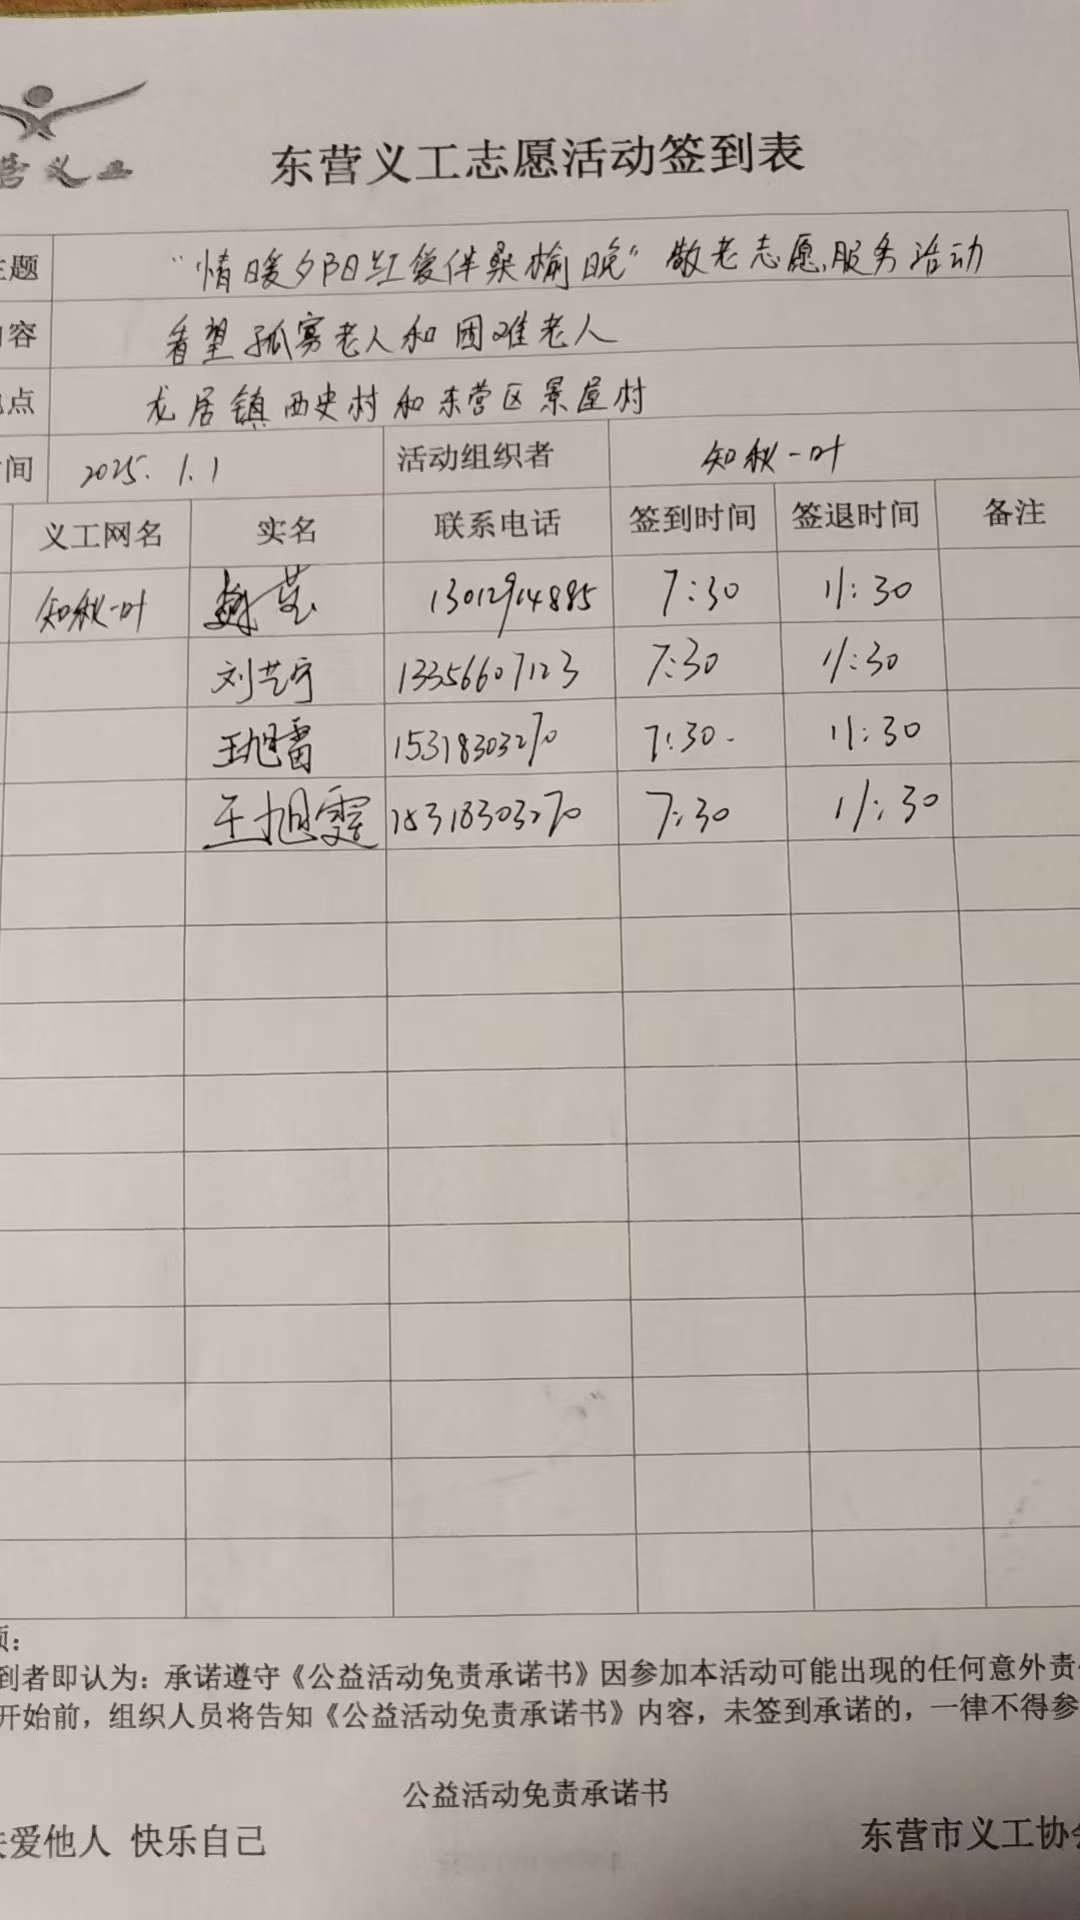 营义工
东营义工志愿活动签到表
主题 "情暖夕阳红爱伴桑榆晚"敬老志愿服务活动
内容 看望孤寡老人和困难老人
地点 龙居镇西史村和东营区景屋村
时间 2025.1.1 活动组织者 知秋一叶
义工网名 实名 联系电话 签到时间 签退时间 备注
知秋一叶 13012914885 7:30 11:30
刘艺宁 13356607123 7:30 11:30
王旭雷 15318303270 7:30. 11:30
王旭霆 15318303270 7:30 11:30
项：
到者即认为：承诺遵守《公益活动免责承诺书》因参加本活动可能出现的任何意外责
开始前，组织人员将告知《公益活动免责承诺书》内容，未签到承诺的，一律不得参
公益活动免责承诺书
关爱他人 快乐自己 东营市义工协会